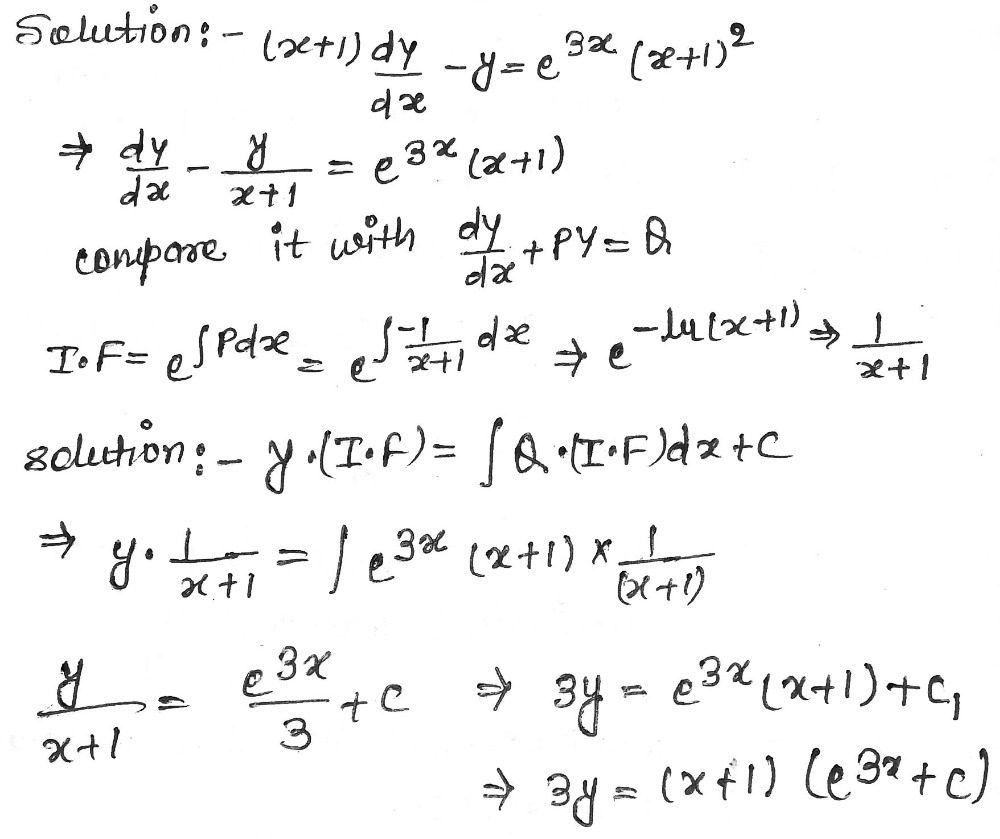 Solution:- (x+1) dy/dx - y = e^3x (x+1)^2
⇒ dy/dx - y/x+1 = e^3x (x+1)
compare it with dy/dx + PY = Q
I.F = e^∫Pdx = e^∫-1/x+1 dx ⇒ e^-ln(x+1) ⇒ 1/x+1
solution:- y.(I.F) = ∫Q.(I.F)dx+C
⇒ y. 1/x+1 = ∫e^3x (x+1) × 1/(x+1)
y/x+1 = e^3x/3 + C ⇒ 3y = e^3x (x+1)+C₁
⇒ 3y = (x+1) (e^3x + C)